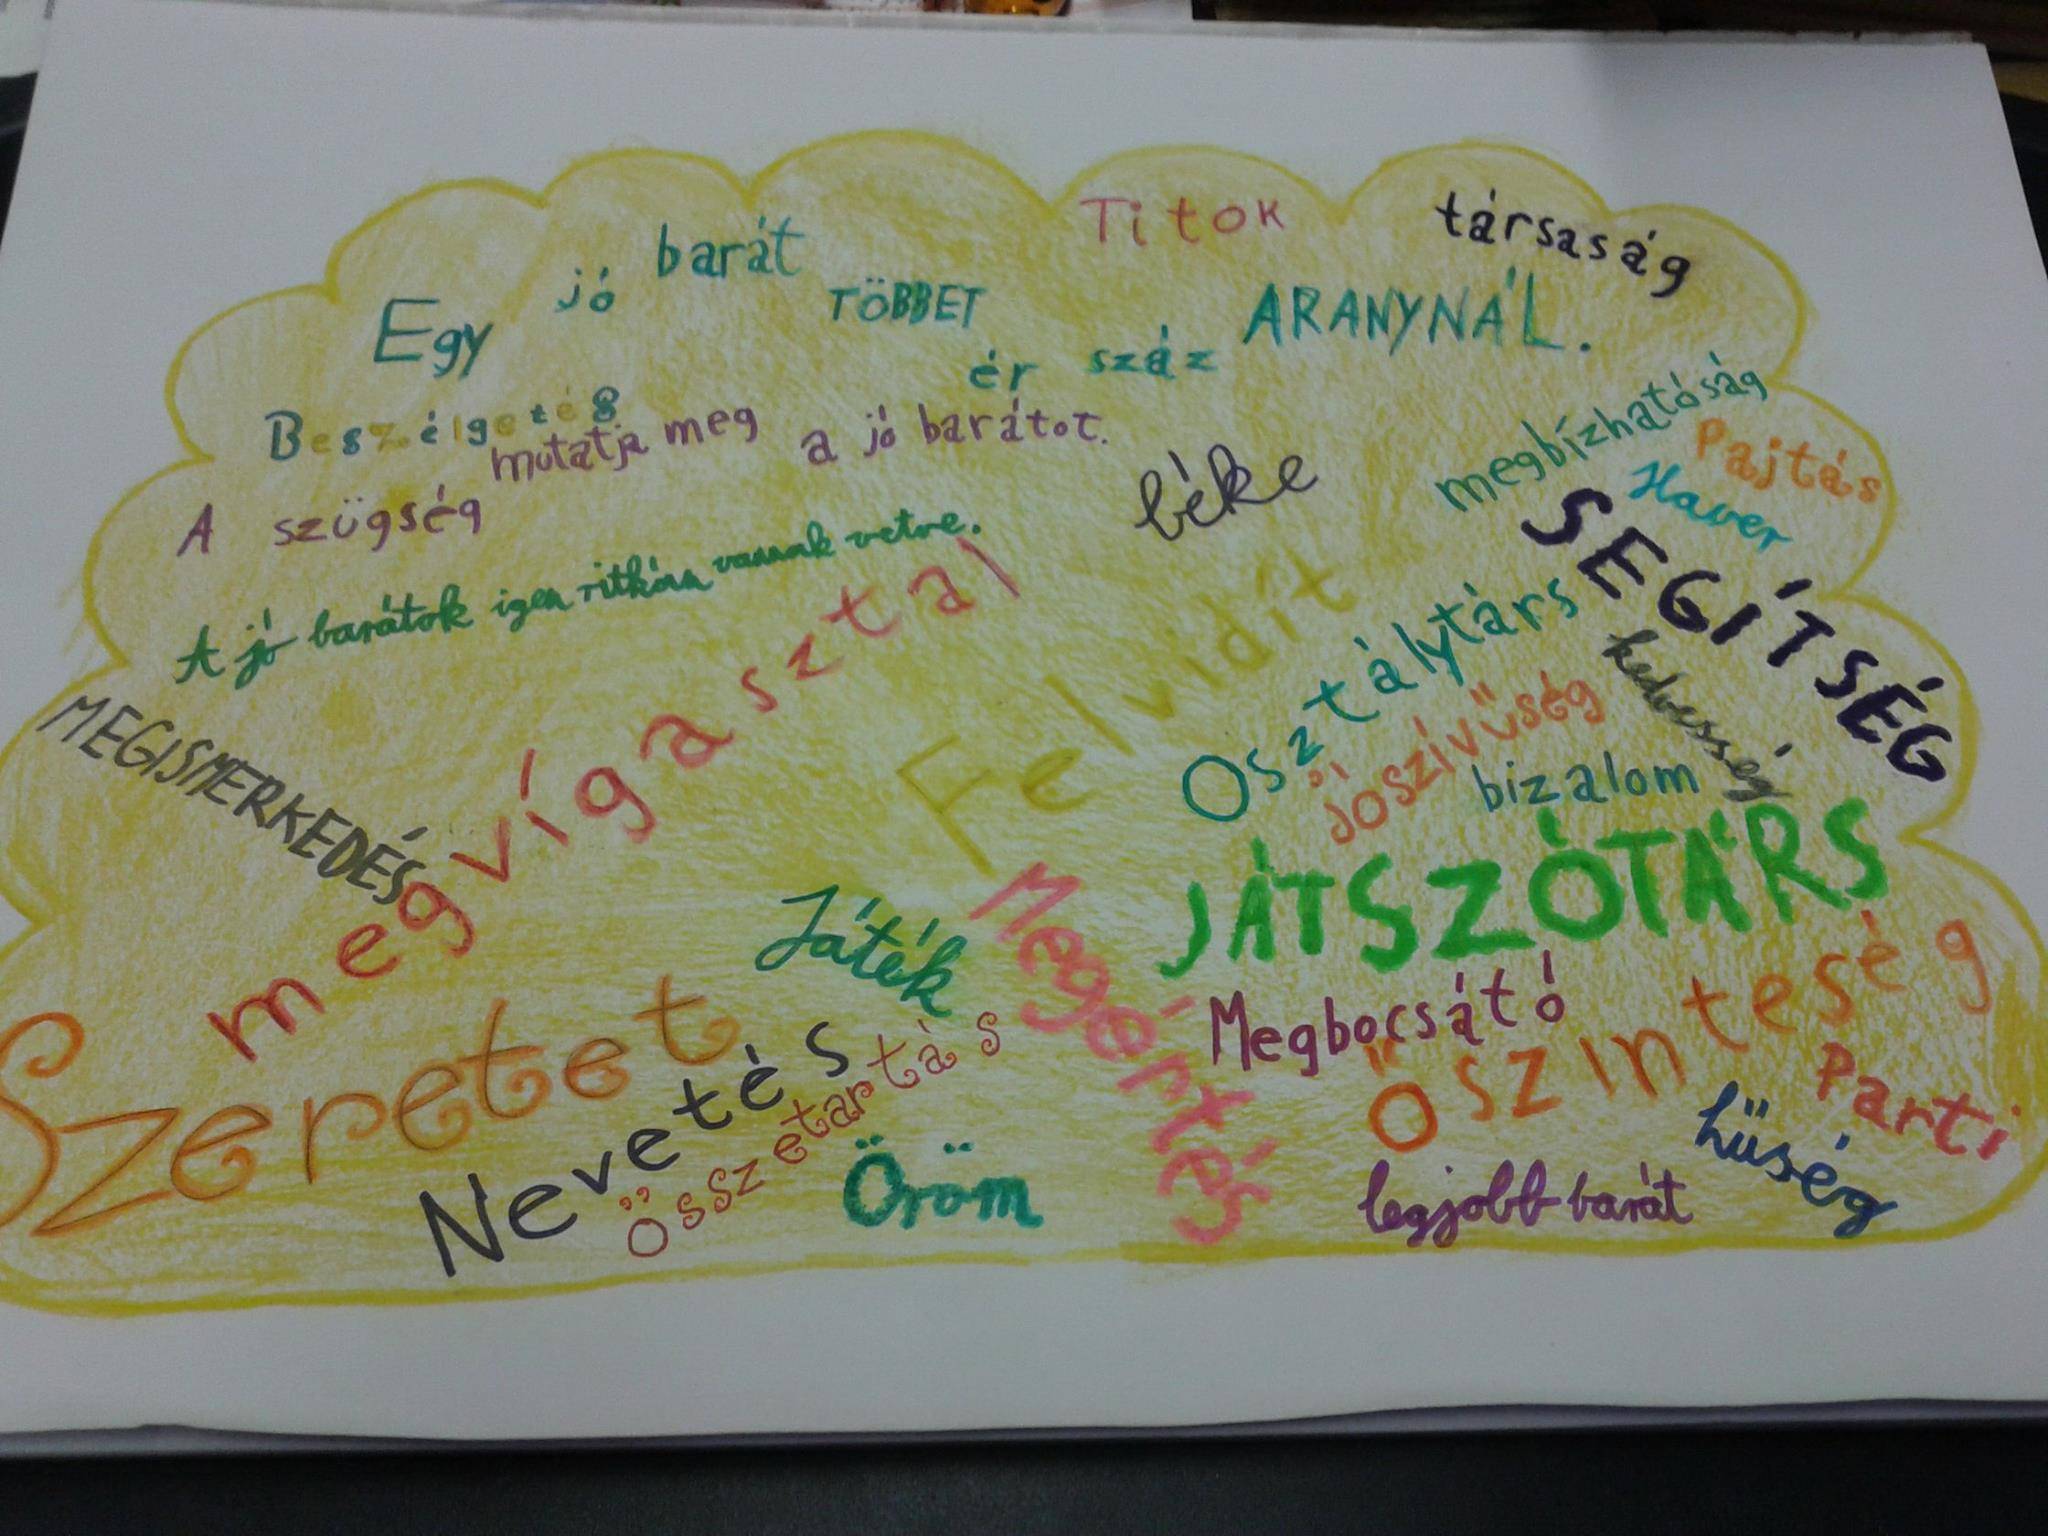 Titok
társaság
Egy jó barát TÖBBET ér száz ARANYNÁL.
Beszélgetés
megbízhatóság
Pajtás
Haver
A szügség mutatja meg a jó barátot.
béke
SEGÍTSÉG
A jó barátok igen ritkán vannak vetve.
megvígasztal
Felvidít
Osztálytárs
kedvesség
jószívűség
bizalom
MEGISMERKEDÉS
JÁTSZÓTÁRS
Játék
Megértés
Megbocsátó
Őszinteség
Szeretet
Nevetés
Összetartás
Parti
hűség
Öröm
legjobb barát